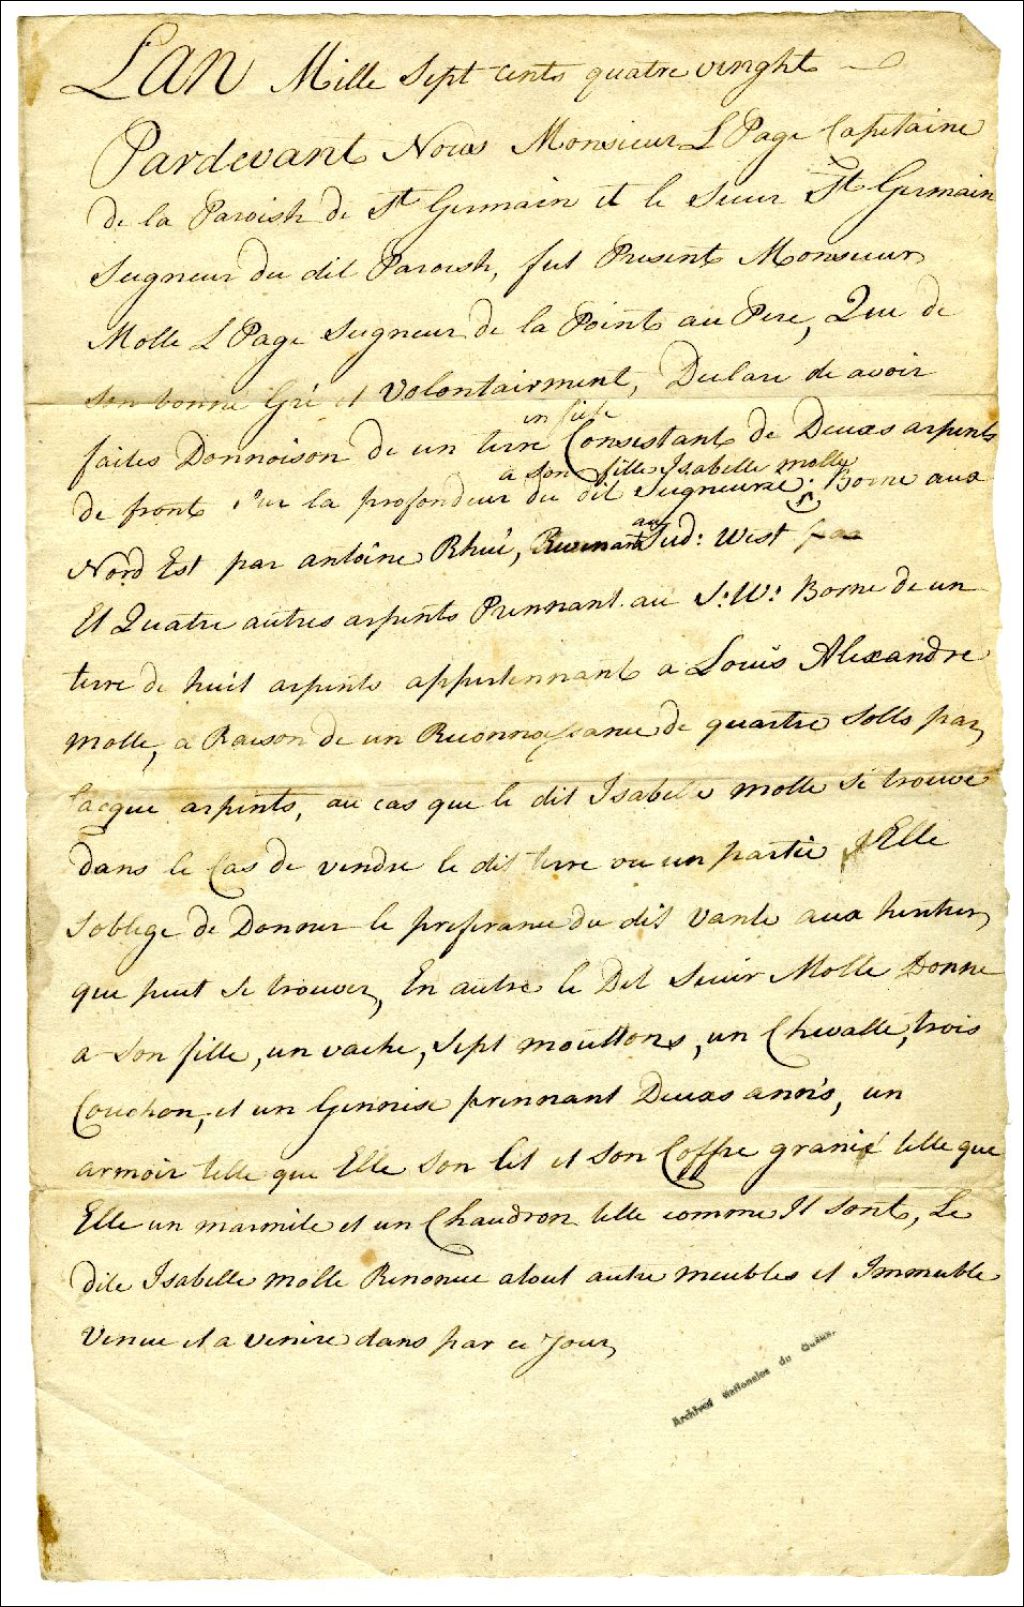 Lan Mille Sept cents quatre vinght
Pardevant Nous Monsieur L Page Capitaine
de la Paroish de St Germain et le Sieur St Germain
Seigneur du dit Paroish, fut Present Monsieur
Molle L Page Seigneur de la Point au Pere, Que de
son bonne Gré et Volontairment, Declare de avoir
in fiefe
faites Donnoison de un terre Consistant de Deuxs arpents
a son fille Isabelle molle
de front sur la profondeur du dit Seigneurie; Borne aux
au
Nord Est par antoine Rhué, Sud: West
Et Quatre autres arpents Prennant au S:W: Borne de un
terre de huit arpents appertennant a Louis Alexandre
Molle, a Raison de un Reconnoissance de quartre Solls par
Cacque arpents, au cas que le dit Isabelle molle se trouve
dans le Cas de vendre le dit terre ou un partie Elle
Soblege de Donner le preferance du dit Vante aux heritier
que peut se trouver, En autre le Dit Sieur Molle Donne
a son fille, un vache, Sept mouttons, un Chevalle, trois
Couchon, et un Gennise prennant Deuxs annés, un
armoir telle que Elle Son lit et Son Coffre granie telle que
Elle un marmite et un Chaudron telle comme Il Sont, Le
dite Isabelle molle Renonce atout autre meubles et Immeuble
Venue et a venire dans par ce Jour,
Archives Nationales du Québec